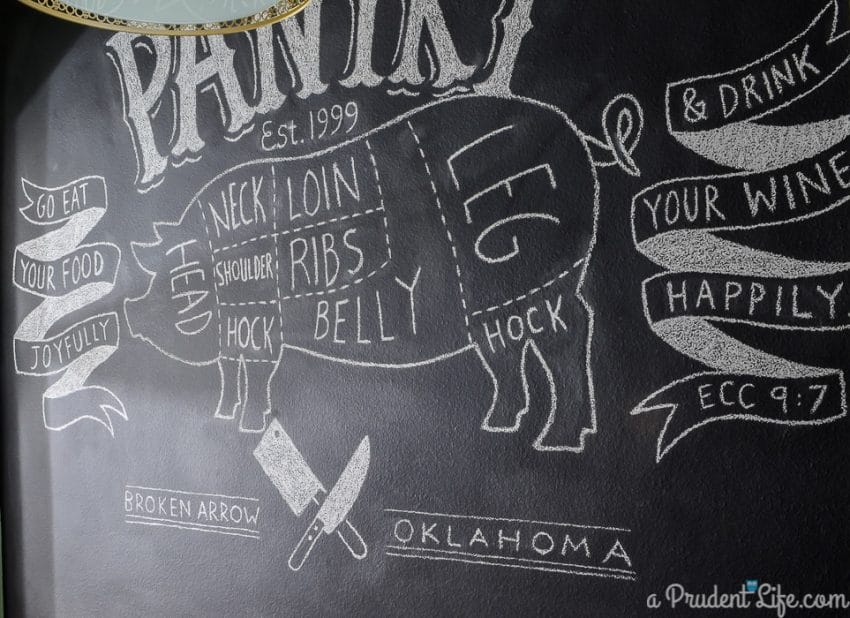 PANTRY
Est. 1999
GO EAT
YOUR FOOD
JOYFULLY
HEAD
NECK
LOIN
SHOULDER
RIBS
HOCK
BELLY
LEG
HOCK
& DRINK
YOUR WINE
HAPPILY.
ECC 9:7
BROKEN ARROW
OKLAHOMA
a Prudent Life.com